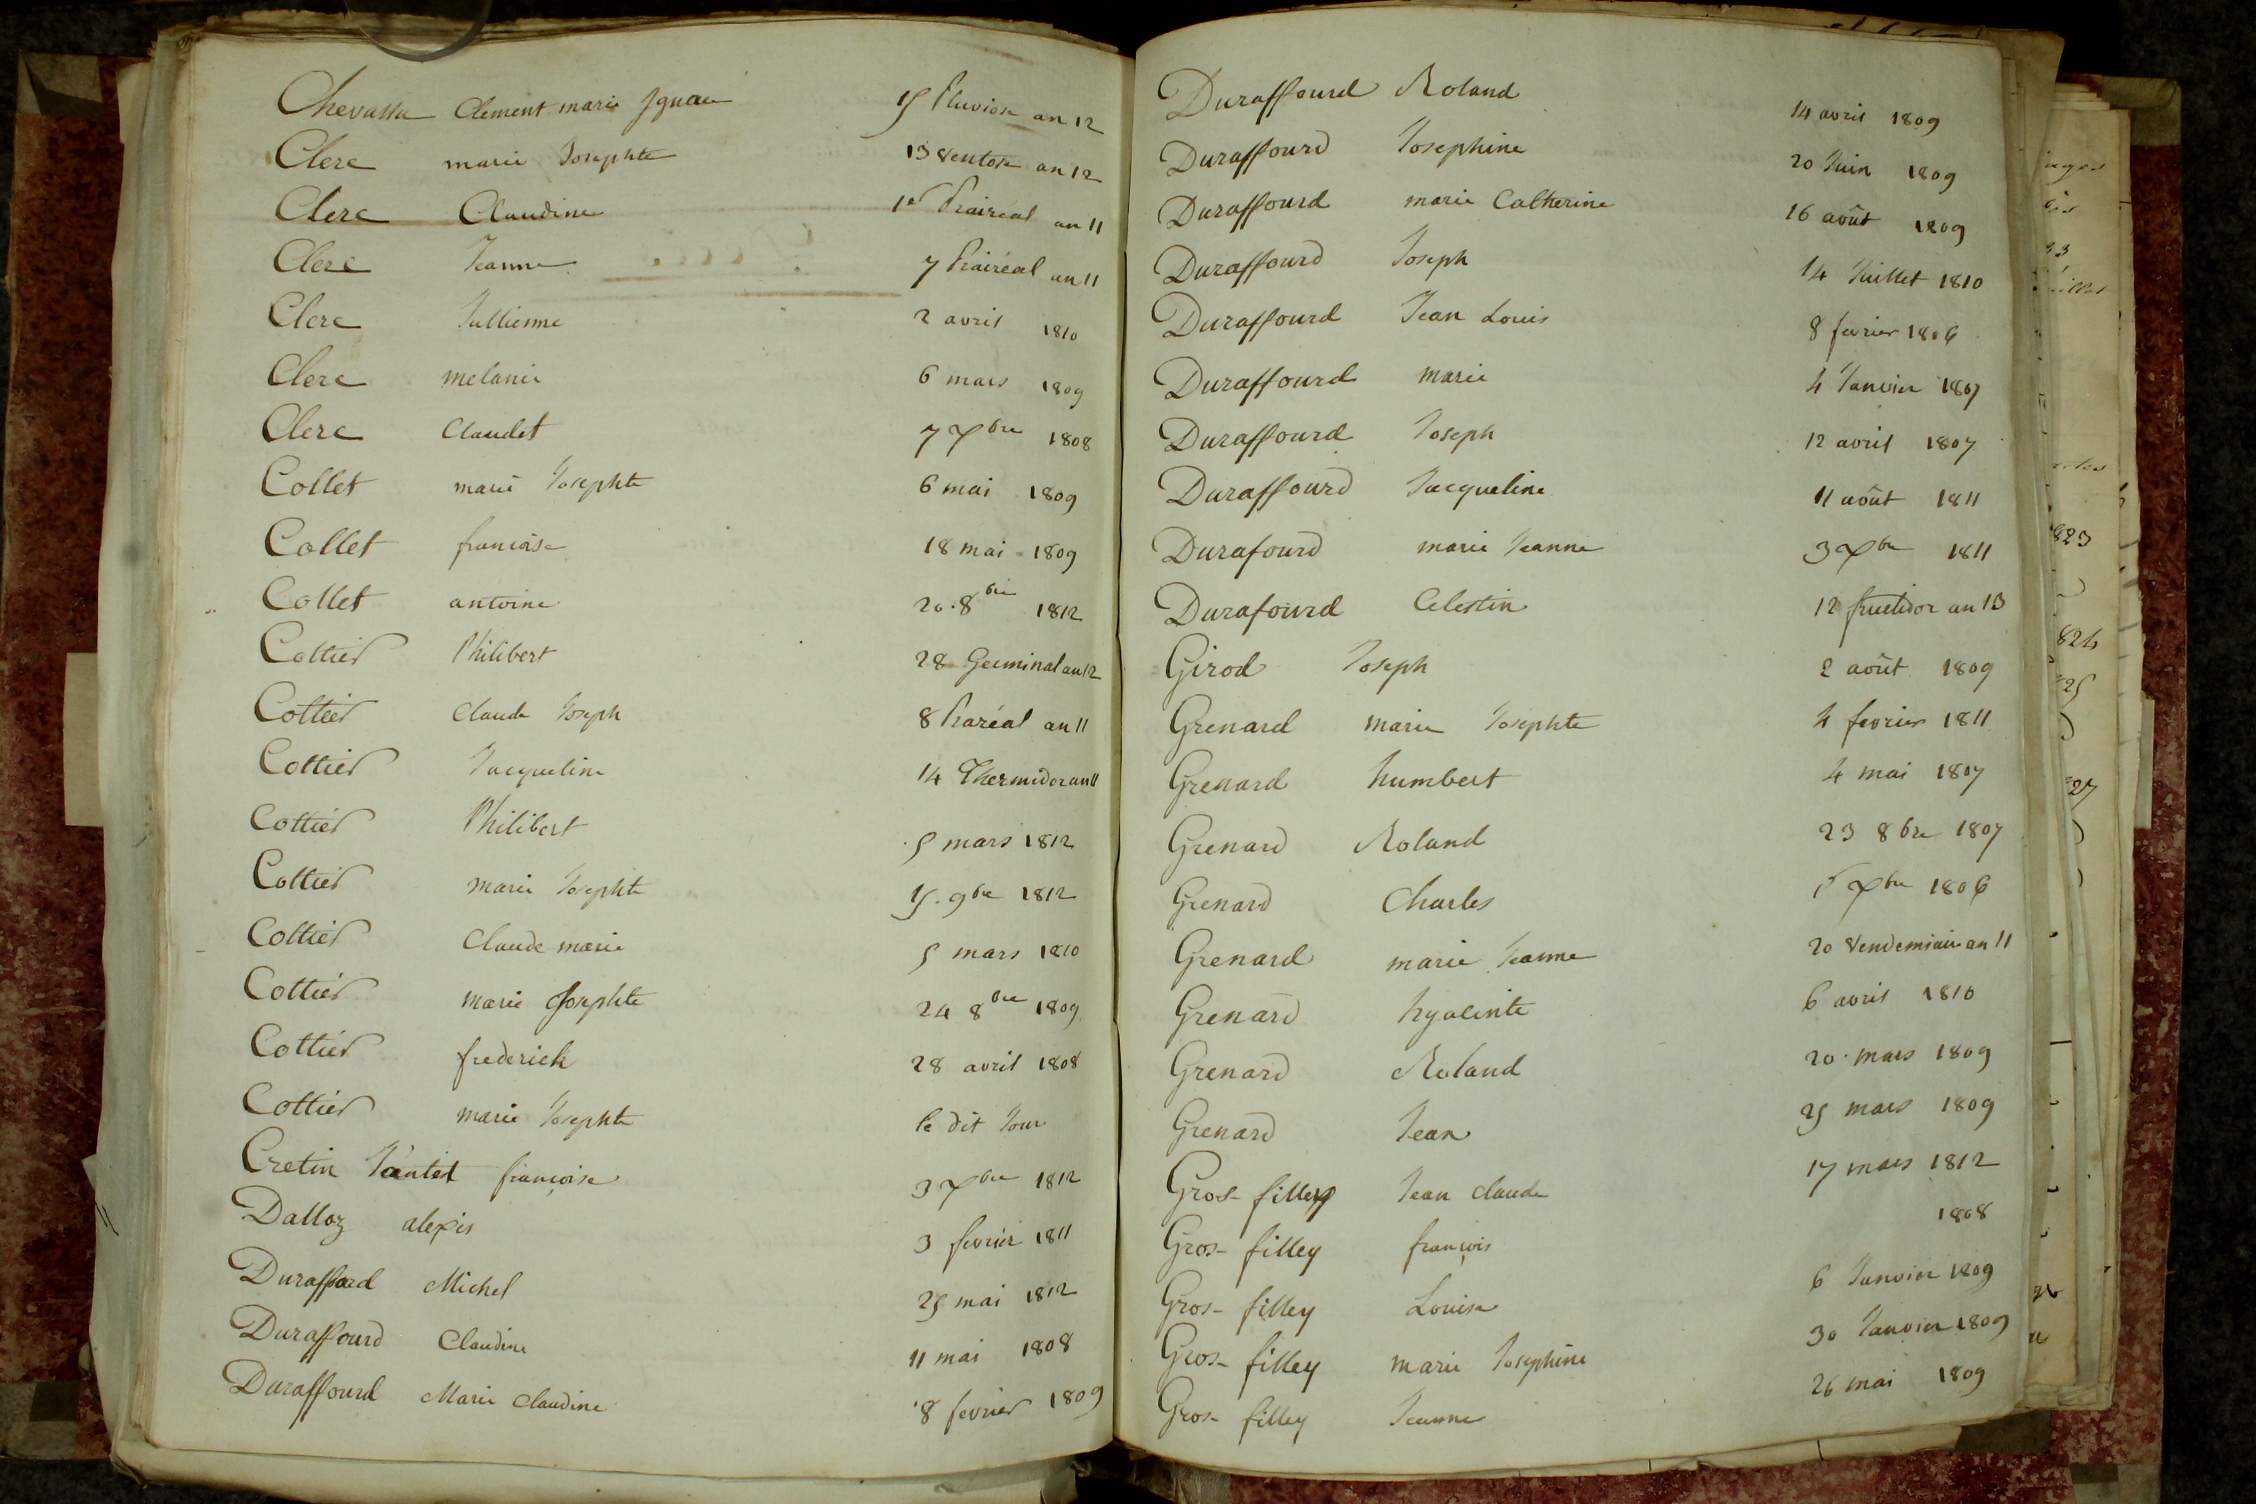 Chevassu Clement marie Ignace 15 Pluviose an 12
Clerc marie Josephte 13 Ventose an 12
Clerc Claudine 1er Prairéal an 11
Clerc Jeanne 7 Prairéal an 11
Clerc Jullienne 2 avril 1810
Clerc melanie 6 mars 1809
Clerc Claudet 7 Xbre 1808
Collet marie Josephte 6 mai 1809
Collet francoise 18 mai 1809
Collet antoine 20. 8bre 1812
Cottier Philibert 28 Germinal an 12
Cottier Claude Joseph 8 Praréal an 11
Cottier Jacqueline 14 Thermidor an 11
Cottier Philibert 5 mars 1812
Cottier marie Josephte 15. 9bre 1812
Cottier Claude marie 5 mars 1810
Cottier marie Josephte 24 8bre 1809
Cottier frederich 28 avril 1808
Cottier marie Josephte le dit Jour
Cretin françoise 3 Xbre 1812
Dalloz alexis 3 fevrier 1811
Duraffard Michel 25 mai 1812
Duraffourd Claudine 11 mai 1808
Duraffourd Marie Claudine 8 fevrier 1809
Duraffourd Roland 14 avril 1809
Duraffourd Josephine 20 Juin 1809
Duraffourd marie Catherine 16 août 1809
Duraffourd Joseph 14 Juillet 1810
Duraffourd Jean Louis 8 fevrier 1806
Duraffourd marie 4 Janvier 1807
Duraffourd Joseph 12 avril 1807
Duraffourd Jacqueline 11 août 1811
Durafourd marie Jeanne 3 Xbre 1811
Durafourd Celestin 12 fructidor an 13
Girod Joseph 2 août 1809
Grenard marie Josephte 4 fevrier 1811
Grenard humbert 4 mai 1807
Grenard Roland 23 8bre 1807
Grenard Charles Xbre 1806
Grenard marie Jeanne 20 Vendemiaire an 11
Grenard hyacinte 6 avril 1810
Grenard Roland 20 mars 1809
Grenard Jean 25 mars 1809
Gros-filley Jean claude 17 mars 1812
Gros-filley françois 1808
Gros-filley Louise 6 Janvier 1809
Gros-filley marie Josephine 30 Janvier 1809
Gros-filley Jeanne 26 mai 1809